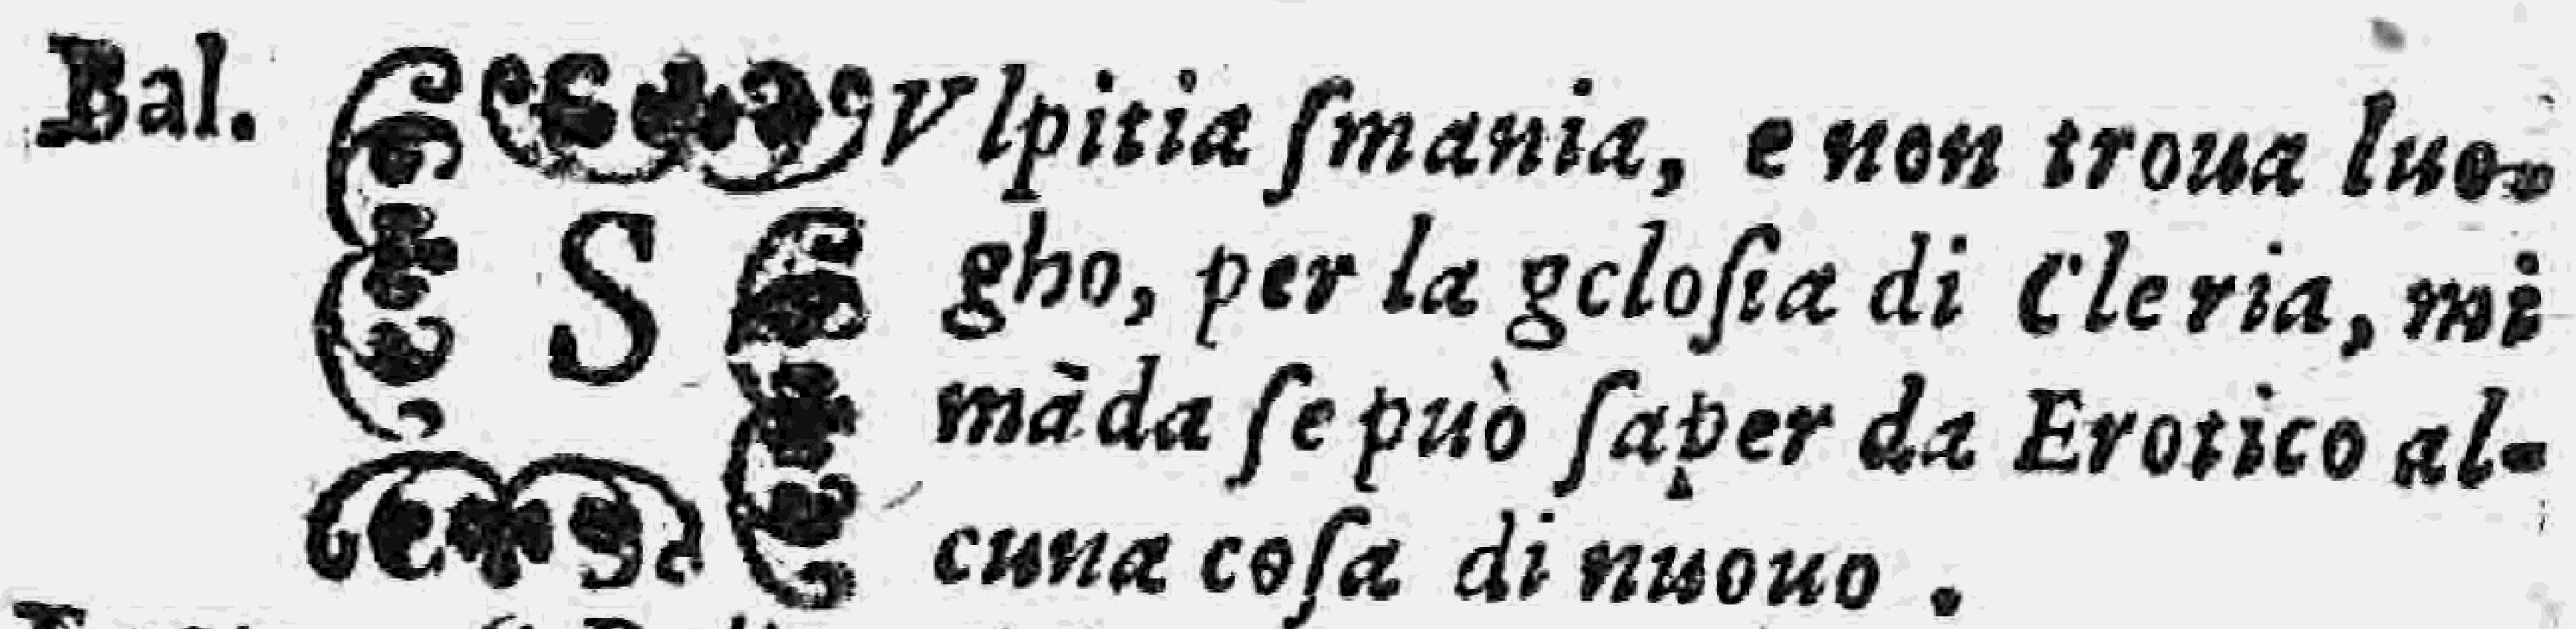 Bal. SVlpitia ſmania, e non troua luo-
gho, per la geloſia di Cleria, mi
mãda ſe può ſaper da Erotico al-
cuna coſa di nuouo .